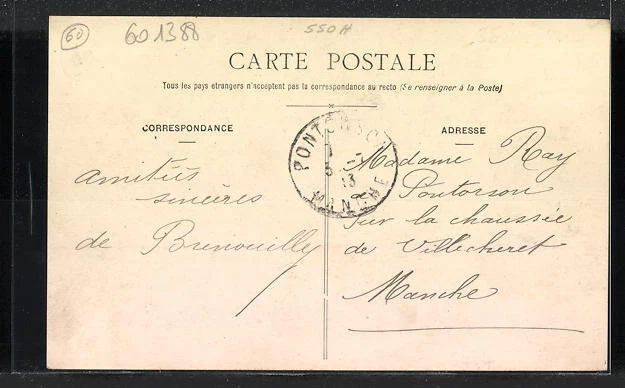 60
601388
550H
CARTE POSTALE
Tous les pays étrangers n'acceptent pas la correspondance au recto (Se renseigner à la Poste)
CORRESPONDANCE
ADRESSE
PONTORSON
MANCHE
amitiés
sincères
de Brenouilly
Madame Ray
Pontorson
Sur la chaussée
de Villecheret
Manche